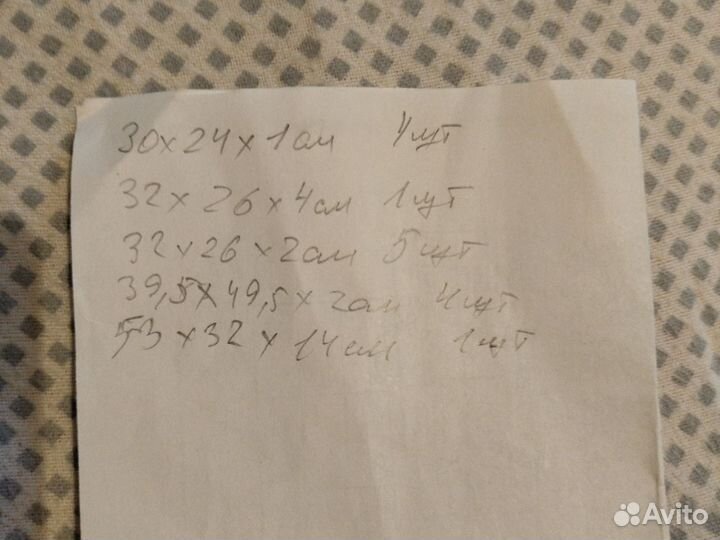 30x24x1см 4шт
32x26x4см 1шт
32x26x2см 5шт
39,5x49,5x2см 4шт
53x32x14см 1шт
Avito